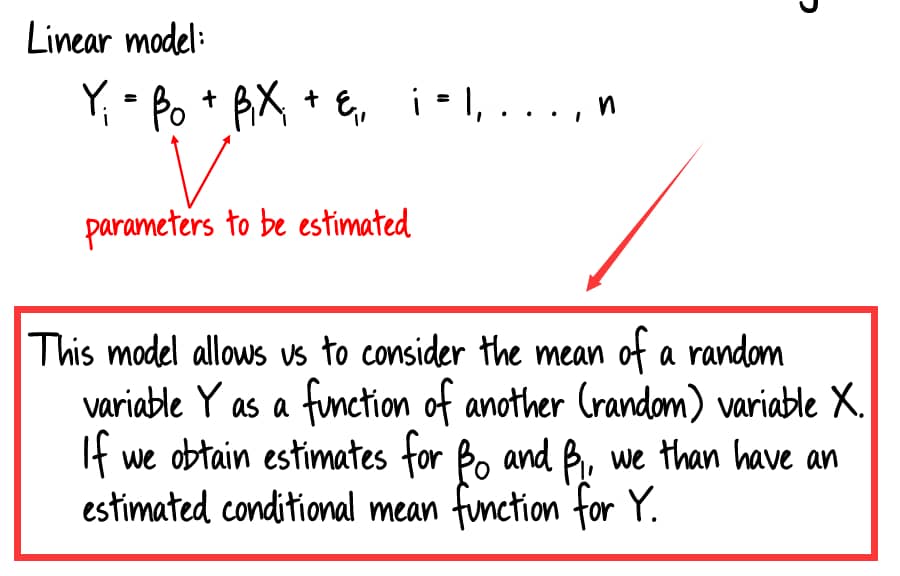 Linear model:
Yᵢ = β₀ + β₁Xᵢ + εᵢ, i = 1, . . . . , n
parameters to be estimated
This model allows us to consider the mean of a random
variable Y as a function of another (random) variable X.
If we obtain estimates for β₀ and β₁, we than have an
estimated conditional mean function for Y.